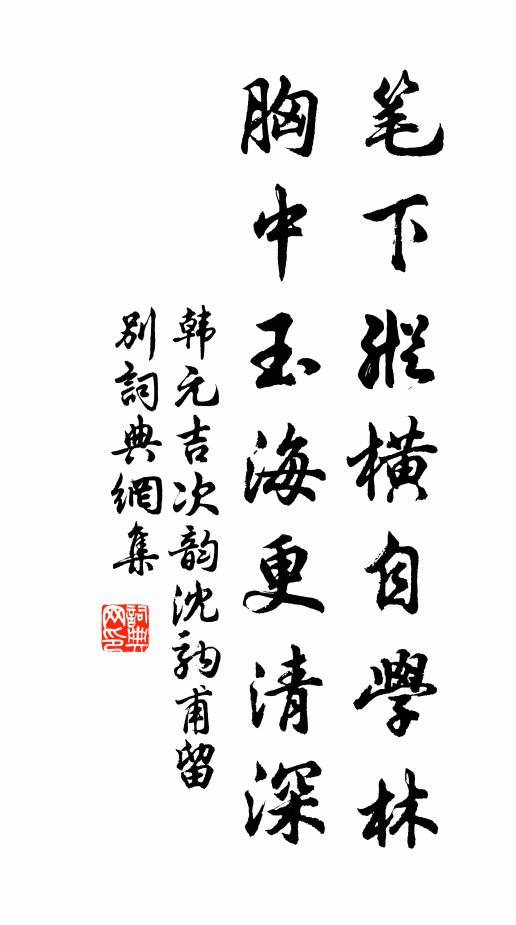 笔下縱橫自學林
胸中玉海更清深
韩元吉次韵沈駒甫留
别詞典網集
詞典
网印